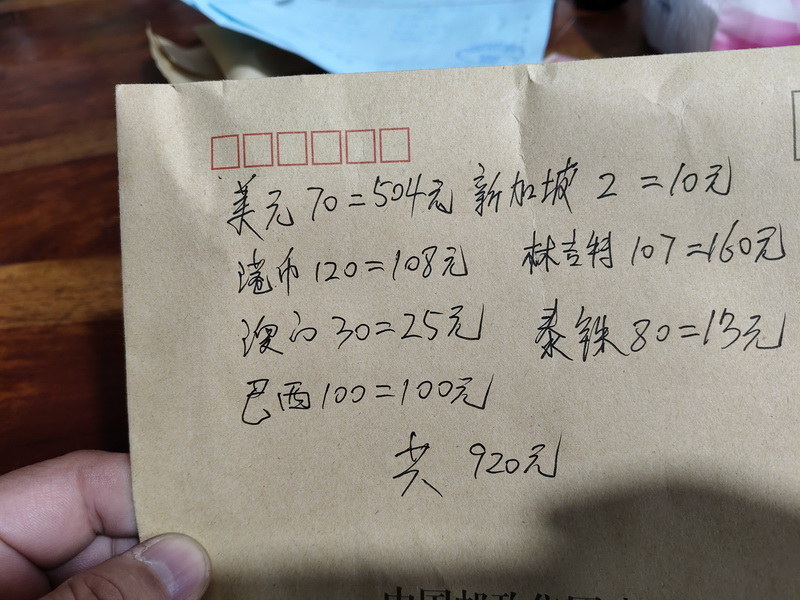 美元 70=504元 新加坡 2 =10元
港币 120=108元 林吉特 107=160元
澳门 30=25元 泰铢 80=13元
巴西 100=100元
共 920元